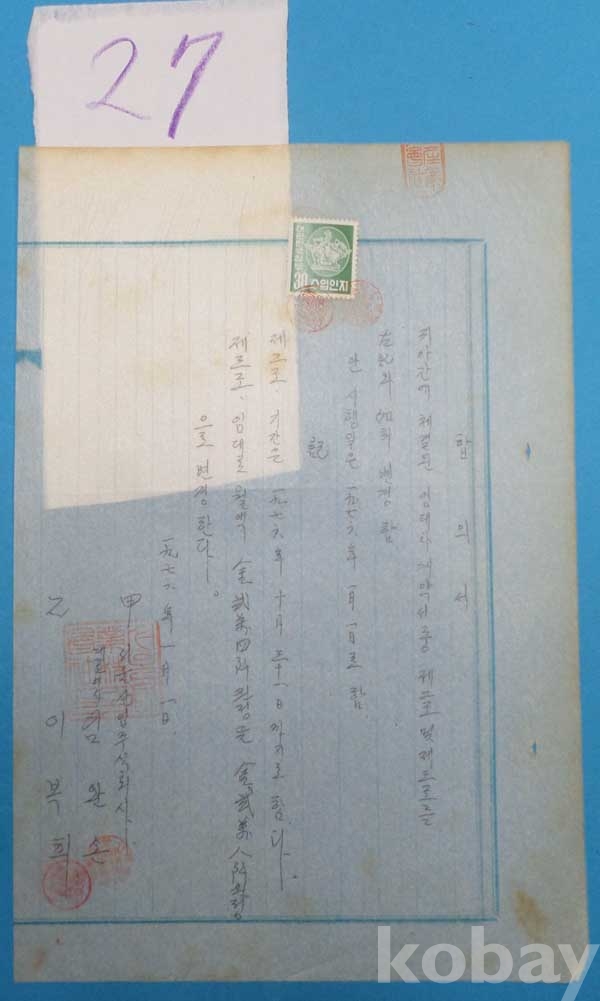 27
대한민국정부
30 수입인지
합의서
피아간에 체결된 임대차계약서중 제二조 및 제三조를
左記와 如히 변경함
단 시행일은 一九七六年 一月 一日로 함.
記
제二조. 기간은 一九七六年 十月 三十一日 까지로 함.
제三조. 임대료 월액 金 貳萬四阡원정을 金 貳萬八阡원정
으로 변경한다.
一九七六年 一月 一日.
甲 주식회사
김완손
乙 이복희
kobay